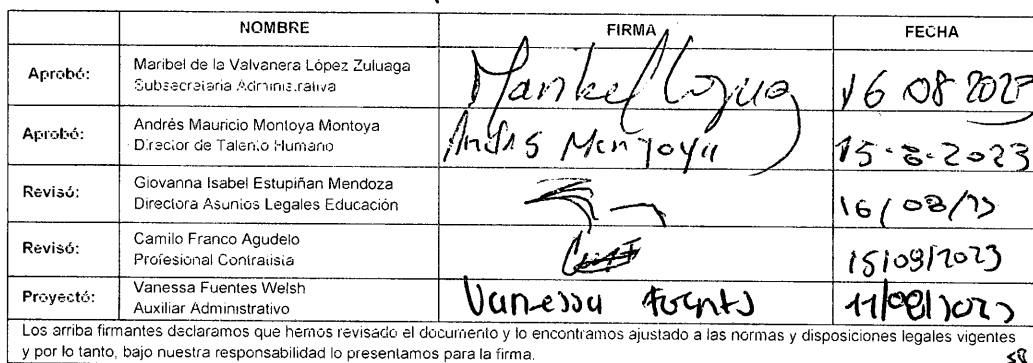 NOMBRE FIRMA FECHA
Aprobó: Maribel de la Valvanera López Zuluaga
Subsecretaria Administrativa
16 08 2023
Aprobó: Andrés Mauricio Montoya Montoya
Director de Talento Humano
Andrés Montoya 15-8-2023
Revisó: Giovanna Isabel Estupiñan Mendoza
Directora Asuntos Legales Educación
16/08/23
Revisó: Camilo Franco Agudelo
Profesional Contratista
Proyectó: Vanessa Fuentes Welsh
Auxiliar Administrativo
Vanessa Fuentes
Los arriba firmantes declaramos que hemos revisado el documento y lo encontramos ajustado a las normas y disposiciones legales vigentes
y por lo tanto, bajo nuestra responsabilidad lo presentamos para la firma.